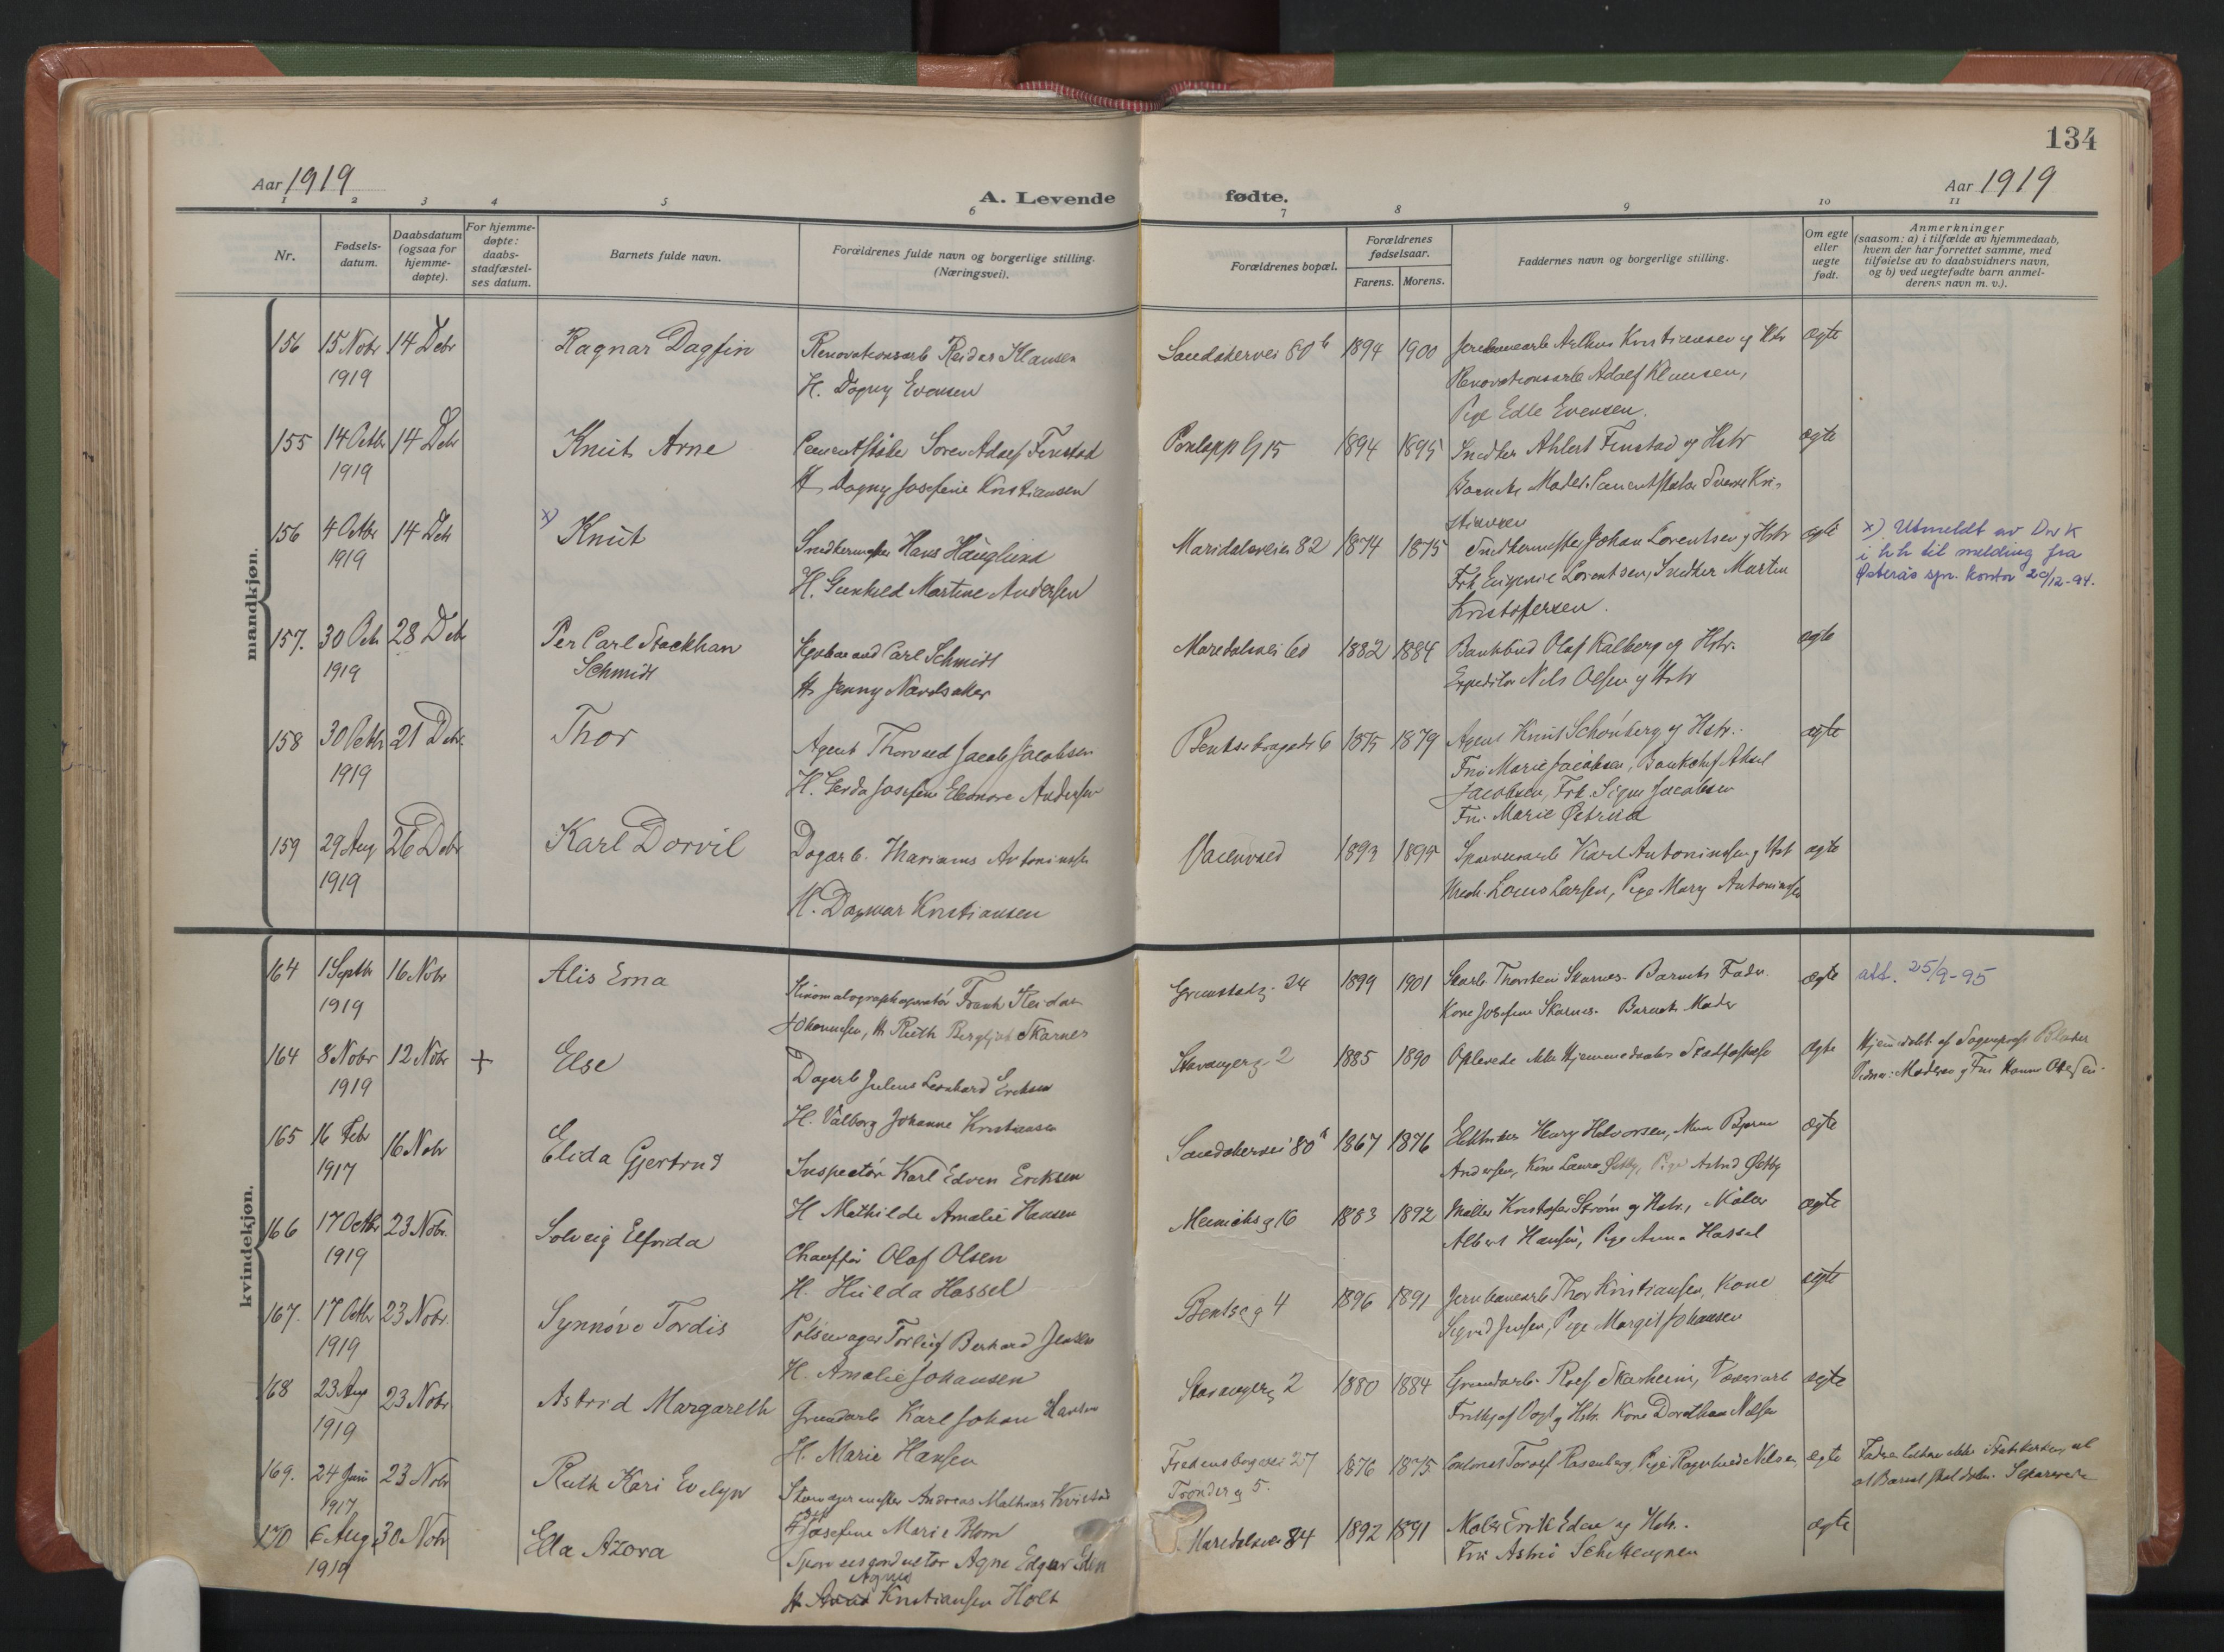 134
Aar 1919
A. Levende fødte.
Aar 1919
1 2 3 4 5 6 7 8 9 10 11
Nr.
Fødsels-
datum.
Daabsdatum
(ogsaa for
hjemme-
døpte).
For hjemme-
døpte:
daabs-
stadfæstel-
ses datum.
Barnets fulde navn.
Forældrenes fulde navn og borgerlige stilling.
(Næringsvei).
Forældrenes bopæl.
Forældrenes
fødselsaar.
Farens. Morens.
Faddernes navn og borgerlige stilling.
Om egte
eller
uegte
født.
Anmerkninger
(saasom: a) i tilfælde av hjemmedaab,
hvem der har forrettet samme, med
tilføielse av to daabsvidners navn,
og b) ved uegtefødte barn anmel-
derens navn m. v.).
mandkjøn.
156 15 Nobr 14 Debr Ragnar Dagfin Renovationsarb Reidar Klausen Sandakervei 80 b 1894 1900 Jernbanearb Arthur Kristiansen og Hstr ægte
1919 H. Dagny Evensen Renovationsarb Adolf Klausen,
Pige Edle Evensen.
155 14 Octbr 14 Debr Knut Arne Cementstøber Soren Adolf Finstad 1894 1895 Snedker Ahlert Finstad og Hstr ægte
1919 H. Dagny Josefine Kristiansen Barnets Moder. Cementstøber Sverre Kri-
stiansen
156 4 Octbr 14 Debr x) Knut Snedkermester Hans Hauglund Maridalsveien 82 1874 1875 Snedkermester Johan Lorentsen og Hstr ægte x) Utmeldt av Dnk
1919 H. Gunhild Martine Andersen Frk Eugenie Lorentsen, Snedker Martin i h h til melding fra
Kristofersen. Østerås spr. kontor 20/12-94.
157. 30 Oct 28 Debr Per Carl Stockhan Carl Schmidt Maridalsvei 60 1882 1884 Bankbud Olaf Kalberg og Hstr. ægte
1919 Schmidt H. Jenny Navelsaker Expeditør Nils Olsen og Hstr
158 30 Octbr 21 Debr Thor Agent Thorvald Jacob Jacobsen Bentsebrogade 6 1875 1879 Agent Knut Schønberg og Hstr. ægte
1919 H. Gerda Josefine Eleonore Andersen Fru Marie Jacobsen, Bankchef Aksel
Jacobsen, Frk. Signe Jacobsen
Fru Marie
159 29 Aug 26 Debr Karl Dorvil Dagarb. Marius Antoninsen 1893 1895 Karl Antoninsen og Hst ægte
1919 H. Dagmar Kristiansen Louis Larsen, Pige Mary Antoninsen
kvindekjøn.
164 1 Septbr 16 Nobr Alis Erna Kinomatographoperatør Frank Reidar Grimstadg. 24 1899 1901 Thorstein Skarnes. Barnets Fader. ægte att. 25/9-95
1919 Johannesen, H. Ruth Bergljot Skarnes Kone Josefine Skarnes. Barnets Moder
164 8 Nobr 12 Nobr + Else Dagarb Julius Leonhard Eriksen Stavangerg 2 1885 1890 Oplevede ikke Hjemmedaabs Stadfæstelse Ægte Hjemdøbt af Sogneprest
1919 H. Valborg Johanne Kristiansen Moderen og Fru Hanna Olsen.
165 16 Febr 16 Nobr Elida Gjertrud Inspectør Karl Edvin Eriksen Sandakervei 80 b 1867 1876 Elektriker Henry Halvorsen, Bjarne ægte
1917 H Mathilde Amalie Hansen Andersen, Kone Laura Østby, Pige Astrid Østby
166 17 Octbr 23 Nobr. Solveig Elfrida Chauffør Olaf Olsen 16 1883 1892 Møller Kristofer Strøm og Hstr, Maler ægte
1919 H. Hulda Hassel Albert Hansen, Pige Anna Hassel
167. 17 Octbr 23 Nobr. Synnøve Tordis Pølsemager Torleif Berhard Jensen Bentseg 4 1896 1891 Jernbanearb Thor Kristiansen, Kone ægte
1919 H. Amalie Johansen Sigrid Jensen, Pige Margit Johansen
168 23 Aug 23 Nobr. Astrid Margareth Grundarb Karl Johan Hansen Stavangerg 2 1880 1884 Grundarb. Rolf Skarheim, ægte
1919 H. Marie Hansen Frithjof Vogt og Hstr. Kone Dorothea Nilsen
169. 24 Juni 23 Nobr Ruth Kari Evelyn Andreas Mathias Kvistad Fredensborgvei 27 1876 1875 Torolf Rosenberg, Pige Ragnhild Nilsen, ægte
1917 Josefine Marie Blom Trønderg 5. at Barnet skal døbes. Separerede
170 6 Aug 30 Nobr Ella Azora Sporveisconductør Agne Edgar Eden Maridalsvei 84 1892 1891 Maler Erik Eden og Hstr. ægte
1919 H. Agnes Kristiansen Holt Fru Astrid